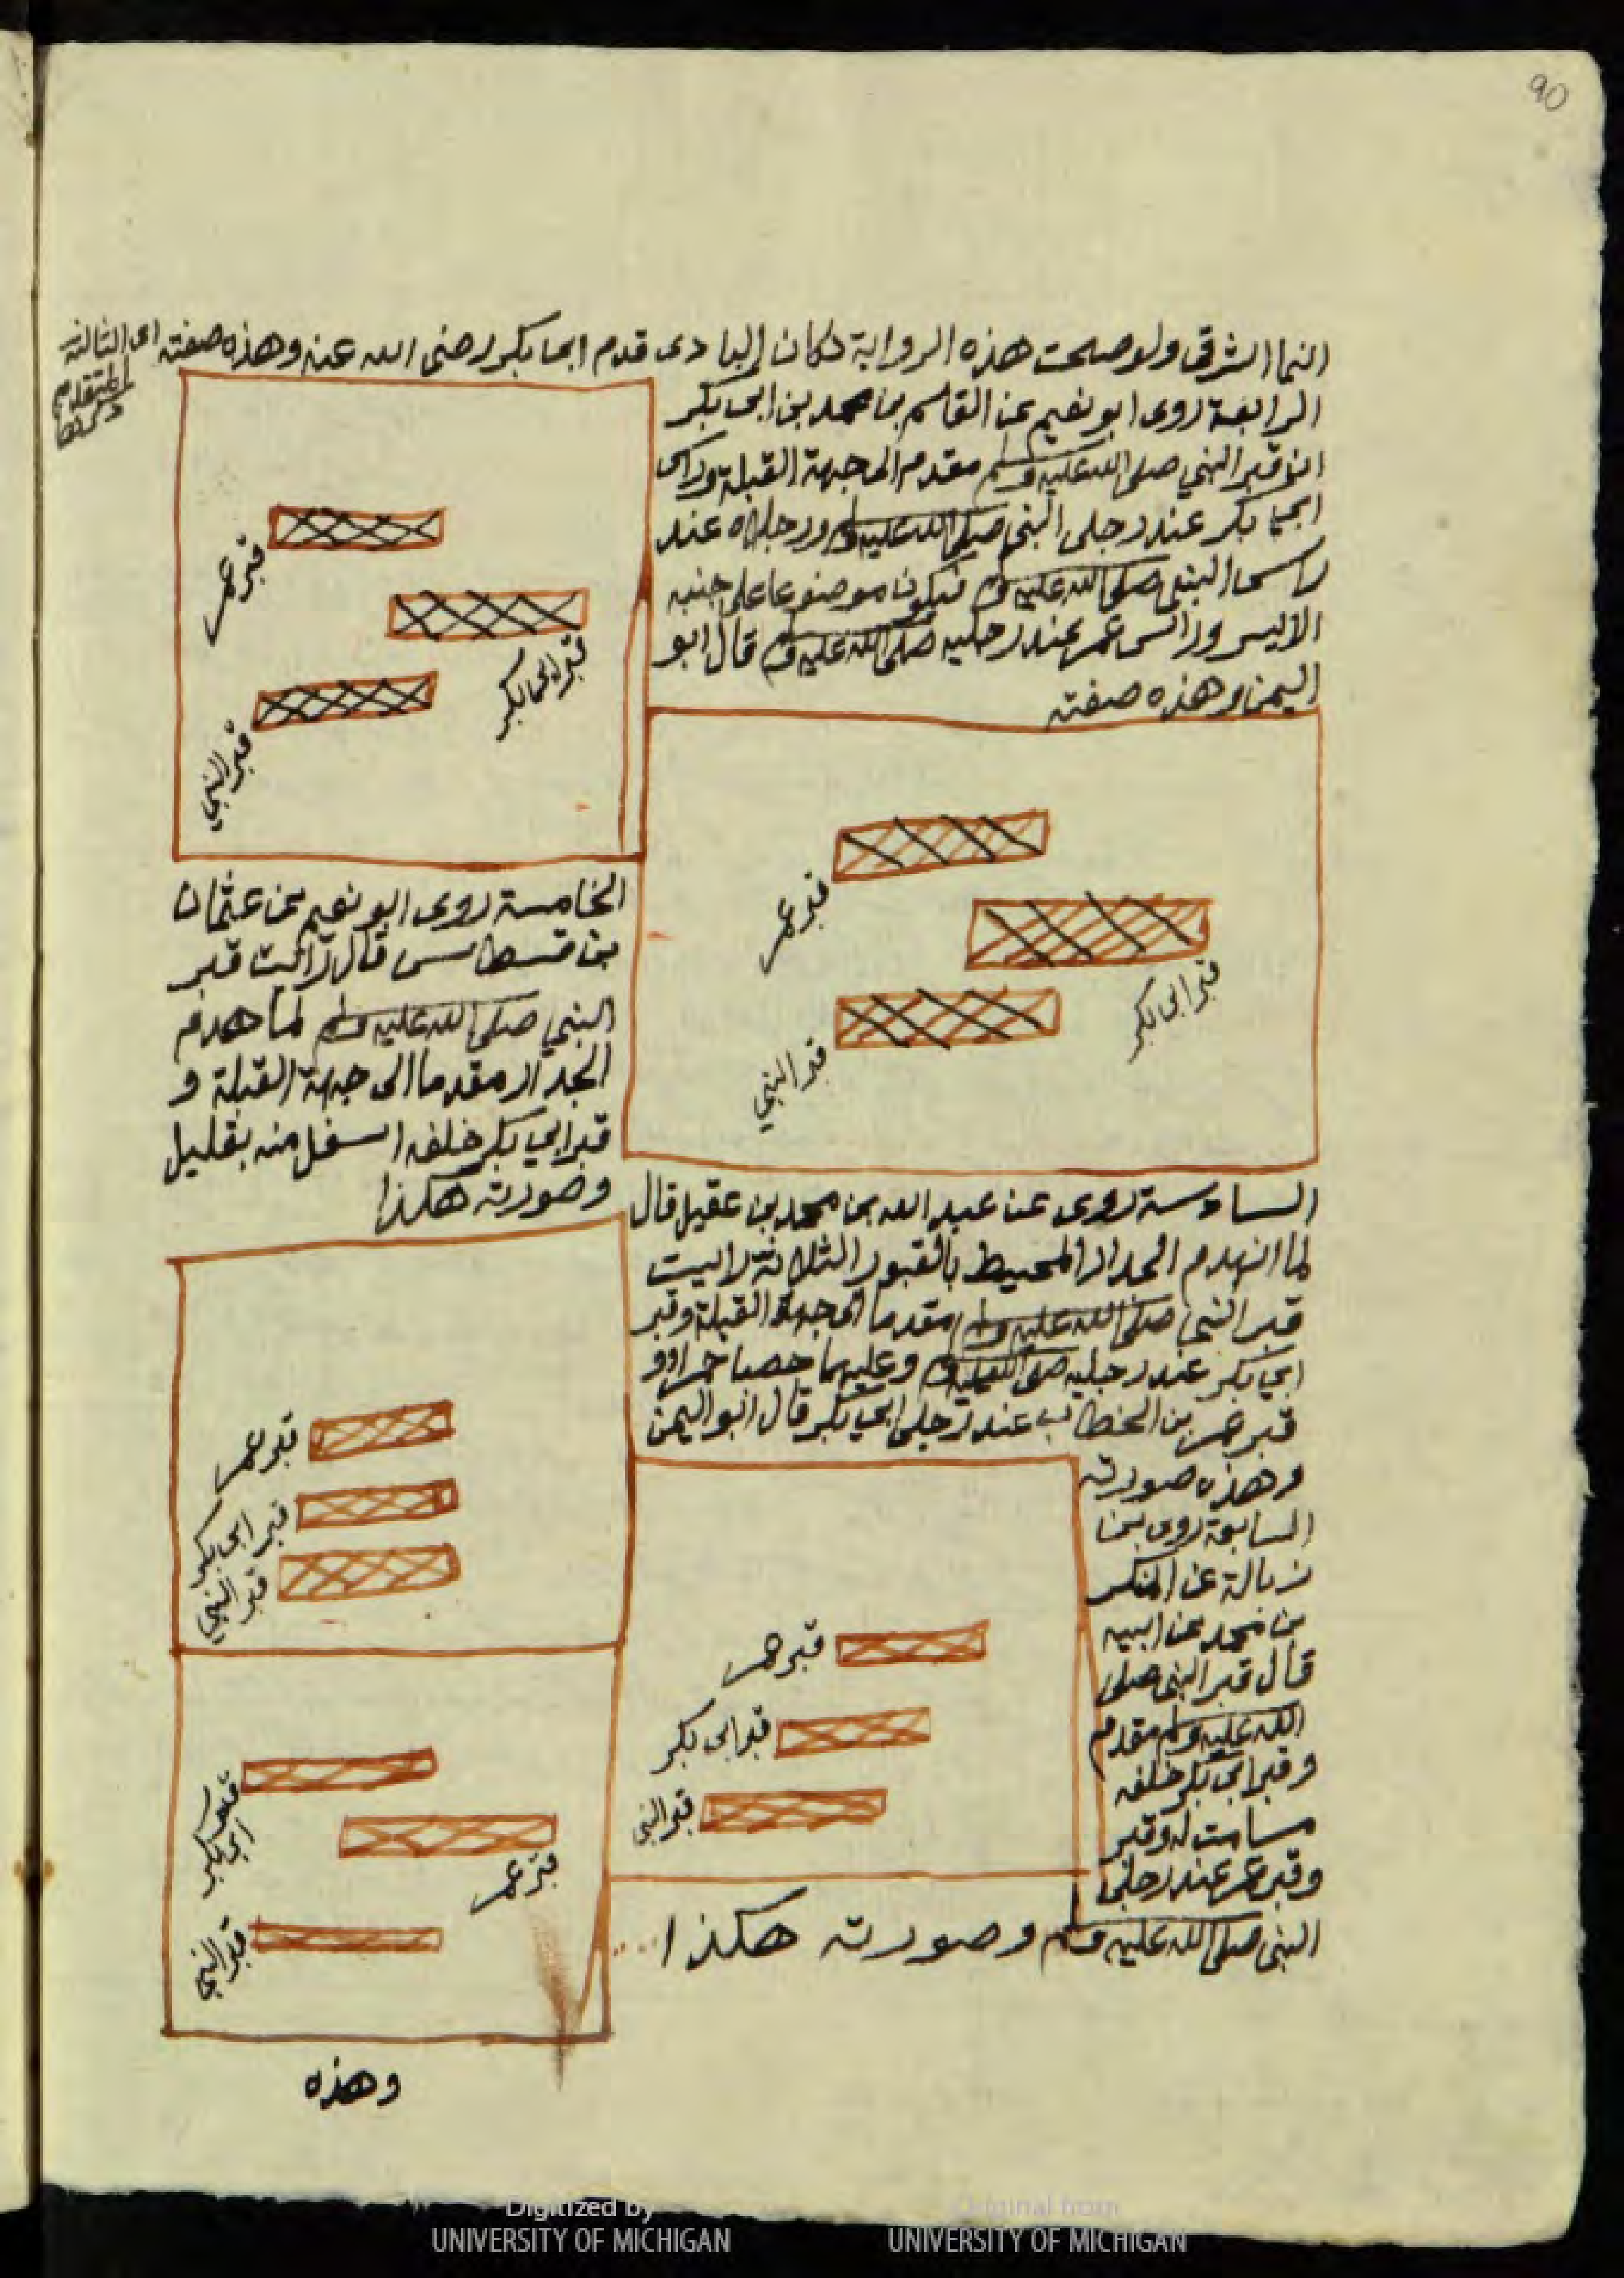 90
النما الشرقى ولو صحت هذه الرواية لكان البادى قدم ابى بكر رضى الله عنه وهذه صفته اى الثالثة
المتقدم
ذكرها
الرابعة روى ابو نعيم عن القاسم بن محمد بن ابى بكر
ان قبر النبي صلى الله عليه وسلم مقدم الى جهة القبلة وراس
ابى بكر عند رجلى النبى صلى الله عليه وسلم ورجلاه عند
راس النبى صلى الله عليه وسلم فيكون موضوعا على جنبه
الايسر وراس عمر عند رجليه صلى الله عليه وسلم قال ابو
اليمن وهذه صفته
قبر عمر
قبر ابى بكر
قبر النبي
قبر عمر
قبر ابى بكر
قبر النبي
الخامسة روى ابو نعيم عن عثمان
بن قسطاس قال رأيت قبر
النبي صلى الله عليه وسلم لما هدم
الجدار مقدما الى جهة القبلة و
قبر ابي بكر خلفه اسفل منه بقليل
وصورته هكذا
السادسة روى عن عبد الله بن محمد بن عقيل قال
لما انهدم الجدار المحيط بالقبور الثلاثة رايت
قبر النبى صلى الله عليه وسلم مقدما الى جهة القبلة وقبر
ابي بكر عند رجليه صلى الله عليه وسلم وعليهما حصبا حمراء و
قبر عمر بن الخطاب عند رجلى ابي بكر قال ابو اليمن
وهذه صورته
قبر عمر
قبر ابى بكر
قبر النبي
السابعة روى بن
زبالة عن المنكدر
بن محمد عن ابيه
قال قبر النبى صلى
الله عليه وسلم مقدم
وقبر ابى بكر خلفه
مسامت له وقبر
وقبر عمر عند رجلى
النبى صلى الله عليه وسلم وصورته هكذا
قبر عمر
قبر ابى بكر
قبر النبى
قبر
ابى بكر
قبر عمر
قبر النبي
وهذه
Digitized by
UNIVERSITY OF MICHIGAN
Original from
UNIVERSITY OF MICHIGAN